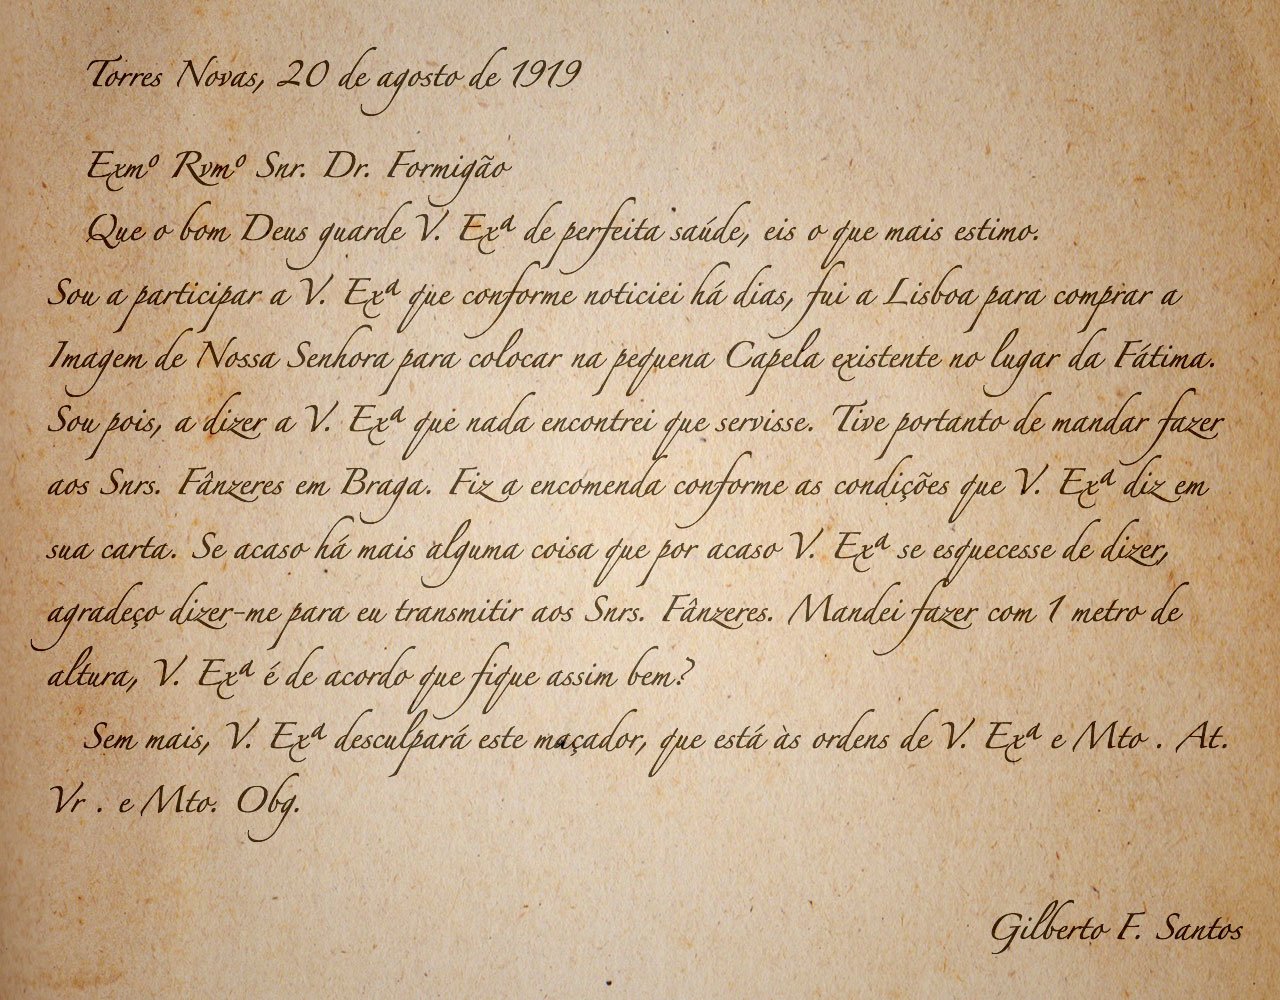 Torres Novas, 20 de agosto de 1919
Exmº Rvmº Snr. Dr. Formigão
Que o bom Deus guarde V. Exª de perfeita saúde, eis o que mais estimo.
Sou a participar a V. Exª que conforme noticiei há dias, fui a Lisboa para comprar a
Imagem de Nossa Senhora para colocar na pequena Capela existente no lugar da Fátima.
Sou pois, a dizer a V. Exª que nada encontrei que servisse. Tive portanto de mandar fazer
aos Snrs. Fânzeres em Braga. Fiz a encomenda conforme as condições que V. Exª diz em
sua carta. Se acaso há mais alguma coisa que por acaso V. Exª se esquecesse de dizer,
agradeço dizer-me para eu transmitir aos Snrs. Fânzeres. Mandei fazer com 1 metro de
altura, V. Exª é de acordo que fique assim bem?
Sem mais, V. Exª desculpará este maçador, que está às ordens de V. Exª e Mto . At.
Vr . e Mto. Obg.
Gilberto F. Santos